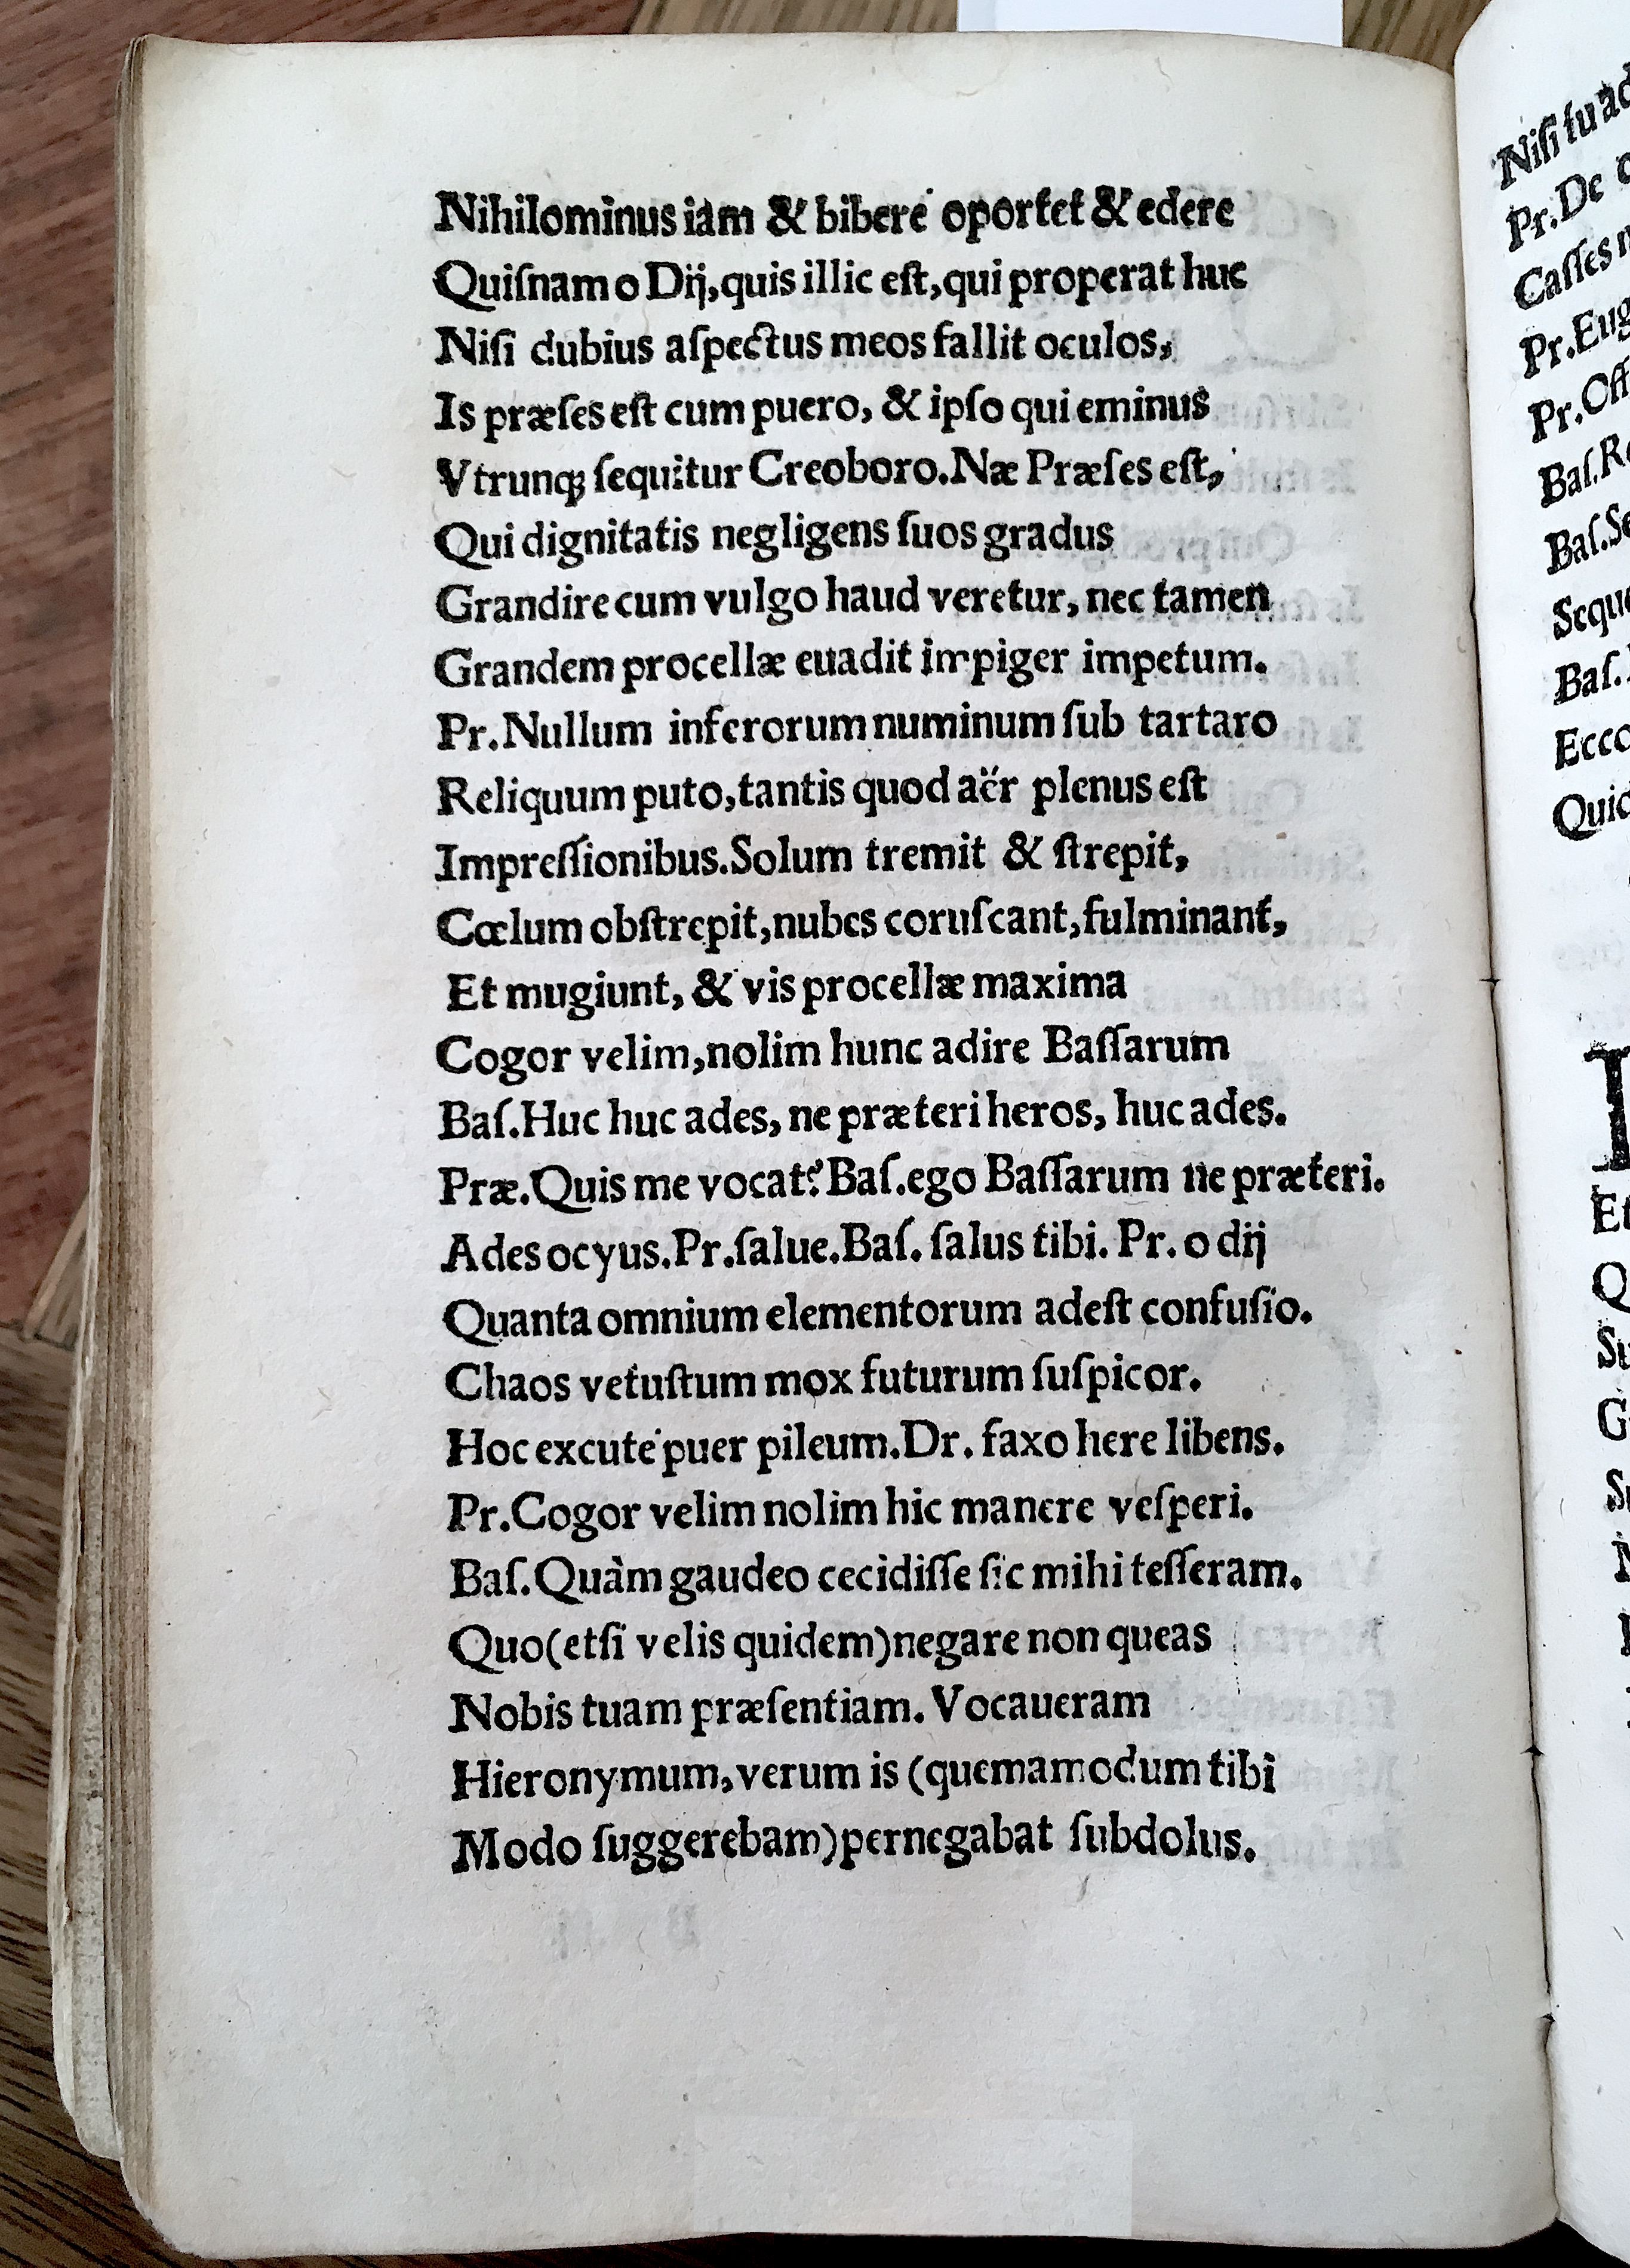 Nihilominus iam & bibere oportet & edere
Quiſnam o Dij, quis illic eſt, qui properat huc
Niſi dubius aſpectus meos fallit oculos,
Is præſes eſt cum puero, & ipſo qui eminus
Vtrunq; ſequitur Creoboro. Næ Præſes eſt,
Qui dignitatis negligens ſuos gradus
Grandire cum vulgo haud veretur, nec tamen
Grandem procellæ euadit impiger impetum.
Pr. Nullum inferorum numinum ſub tartaro
Reliquum puto, tantis quod aër plenus eſt
Impreſſionibus. Solum tremit & ſtrepit,
Cœlum obſtrepit, nubes coruſcant, fulminant,
Et mugiunt, & vis procellæ maxima
Cogor velim, nolim hunc adire Baſſarum
Baſ. Huc huc ades, ne præteri heros, huc ades.
Præ. Quis me vocat? Baſ. ego Baſſarum ne præteri.
Ades ocyus. Pr. ſalue. Baſ. ſalus tibi. Pr. o dij
Quanta omnium elementorum adeſt confuſio.
Chaos vetuſtum mox futurum ſuſpicor.
Hoc excute puer pileum. Dr. faxo here libens.
Pr. Cogor velim nolim hic manere veſperi.
Baſ. Quàm gaudeo cecidiſſe ſic mihi teſſeram.
Quo (etſi velis quidem) negare non queas
Nobis tuam præſentiam. Vocaueram
Hieronymum, verum is (quemamodum tibi
Modo ſuggerebam) pernegabat ſubdolus.
Niſi tu ad
Pr. De
Caſſes
Pr. Eug
Pr. Off
Baſ. Re
Baſ. Se
Seque
Baſ.
Ecco
Quid
Et
Q
Su
G